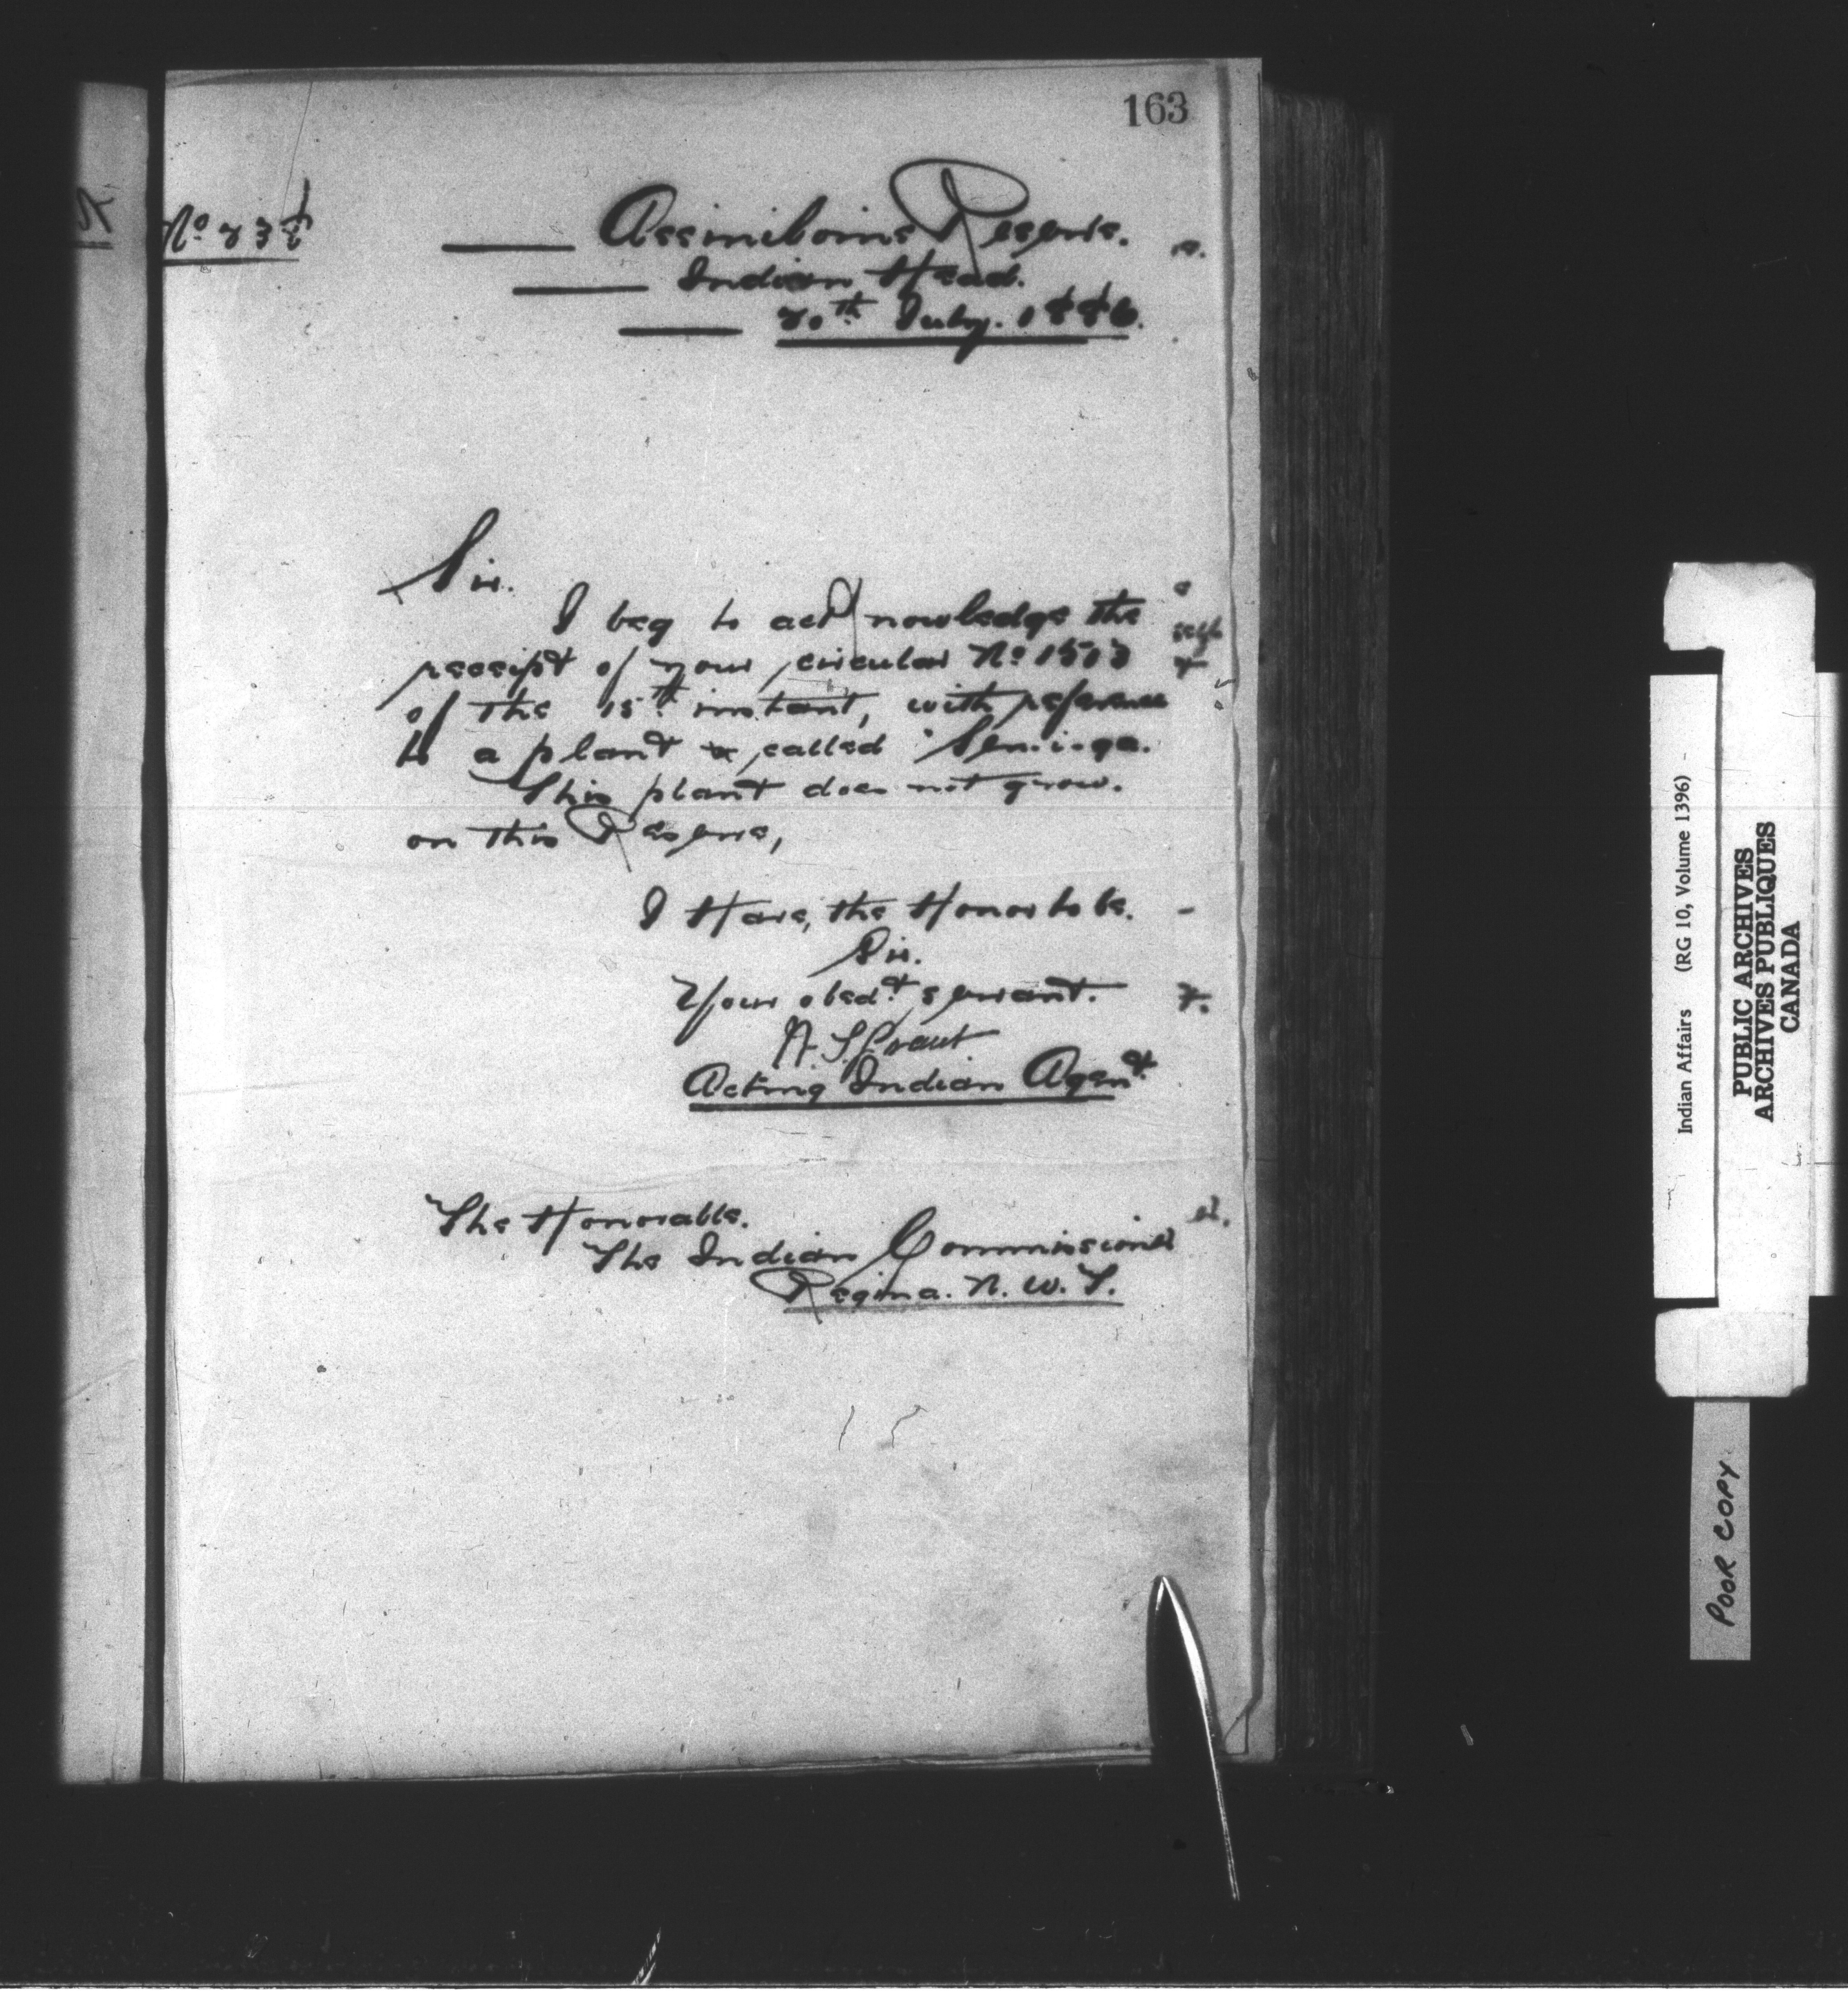 163
No 238
Assiniboine Reserve.
Indian Head.
20th July. 1886.
Sir.
I beg to acknowledge the
receipt of your circular No 1513
of the 15th instant, with reference
to a plant called "Sen-i-ga.
This plant does not grow.
on this Reserve,
I Have, the Honor to be.
Sir.
Your obedt servant.
W. S. Grant
Acting Indian Agent.
The Honorable.
The Indian Commissioner
Regina. N. W. T.
Indian Affairs (RG 10, Volume 1396)
PUBLIC ARCHIVES
ARCHIVES PUBLIQUES
CANADA
POOR COPY